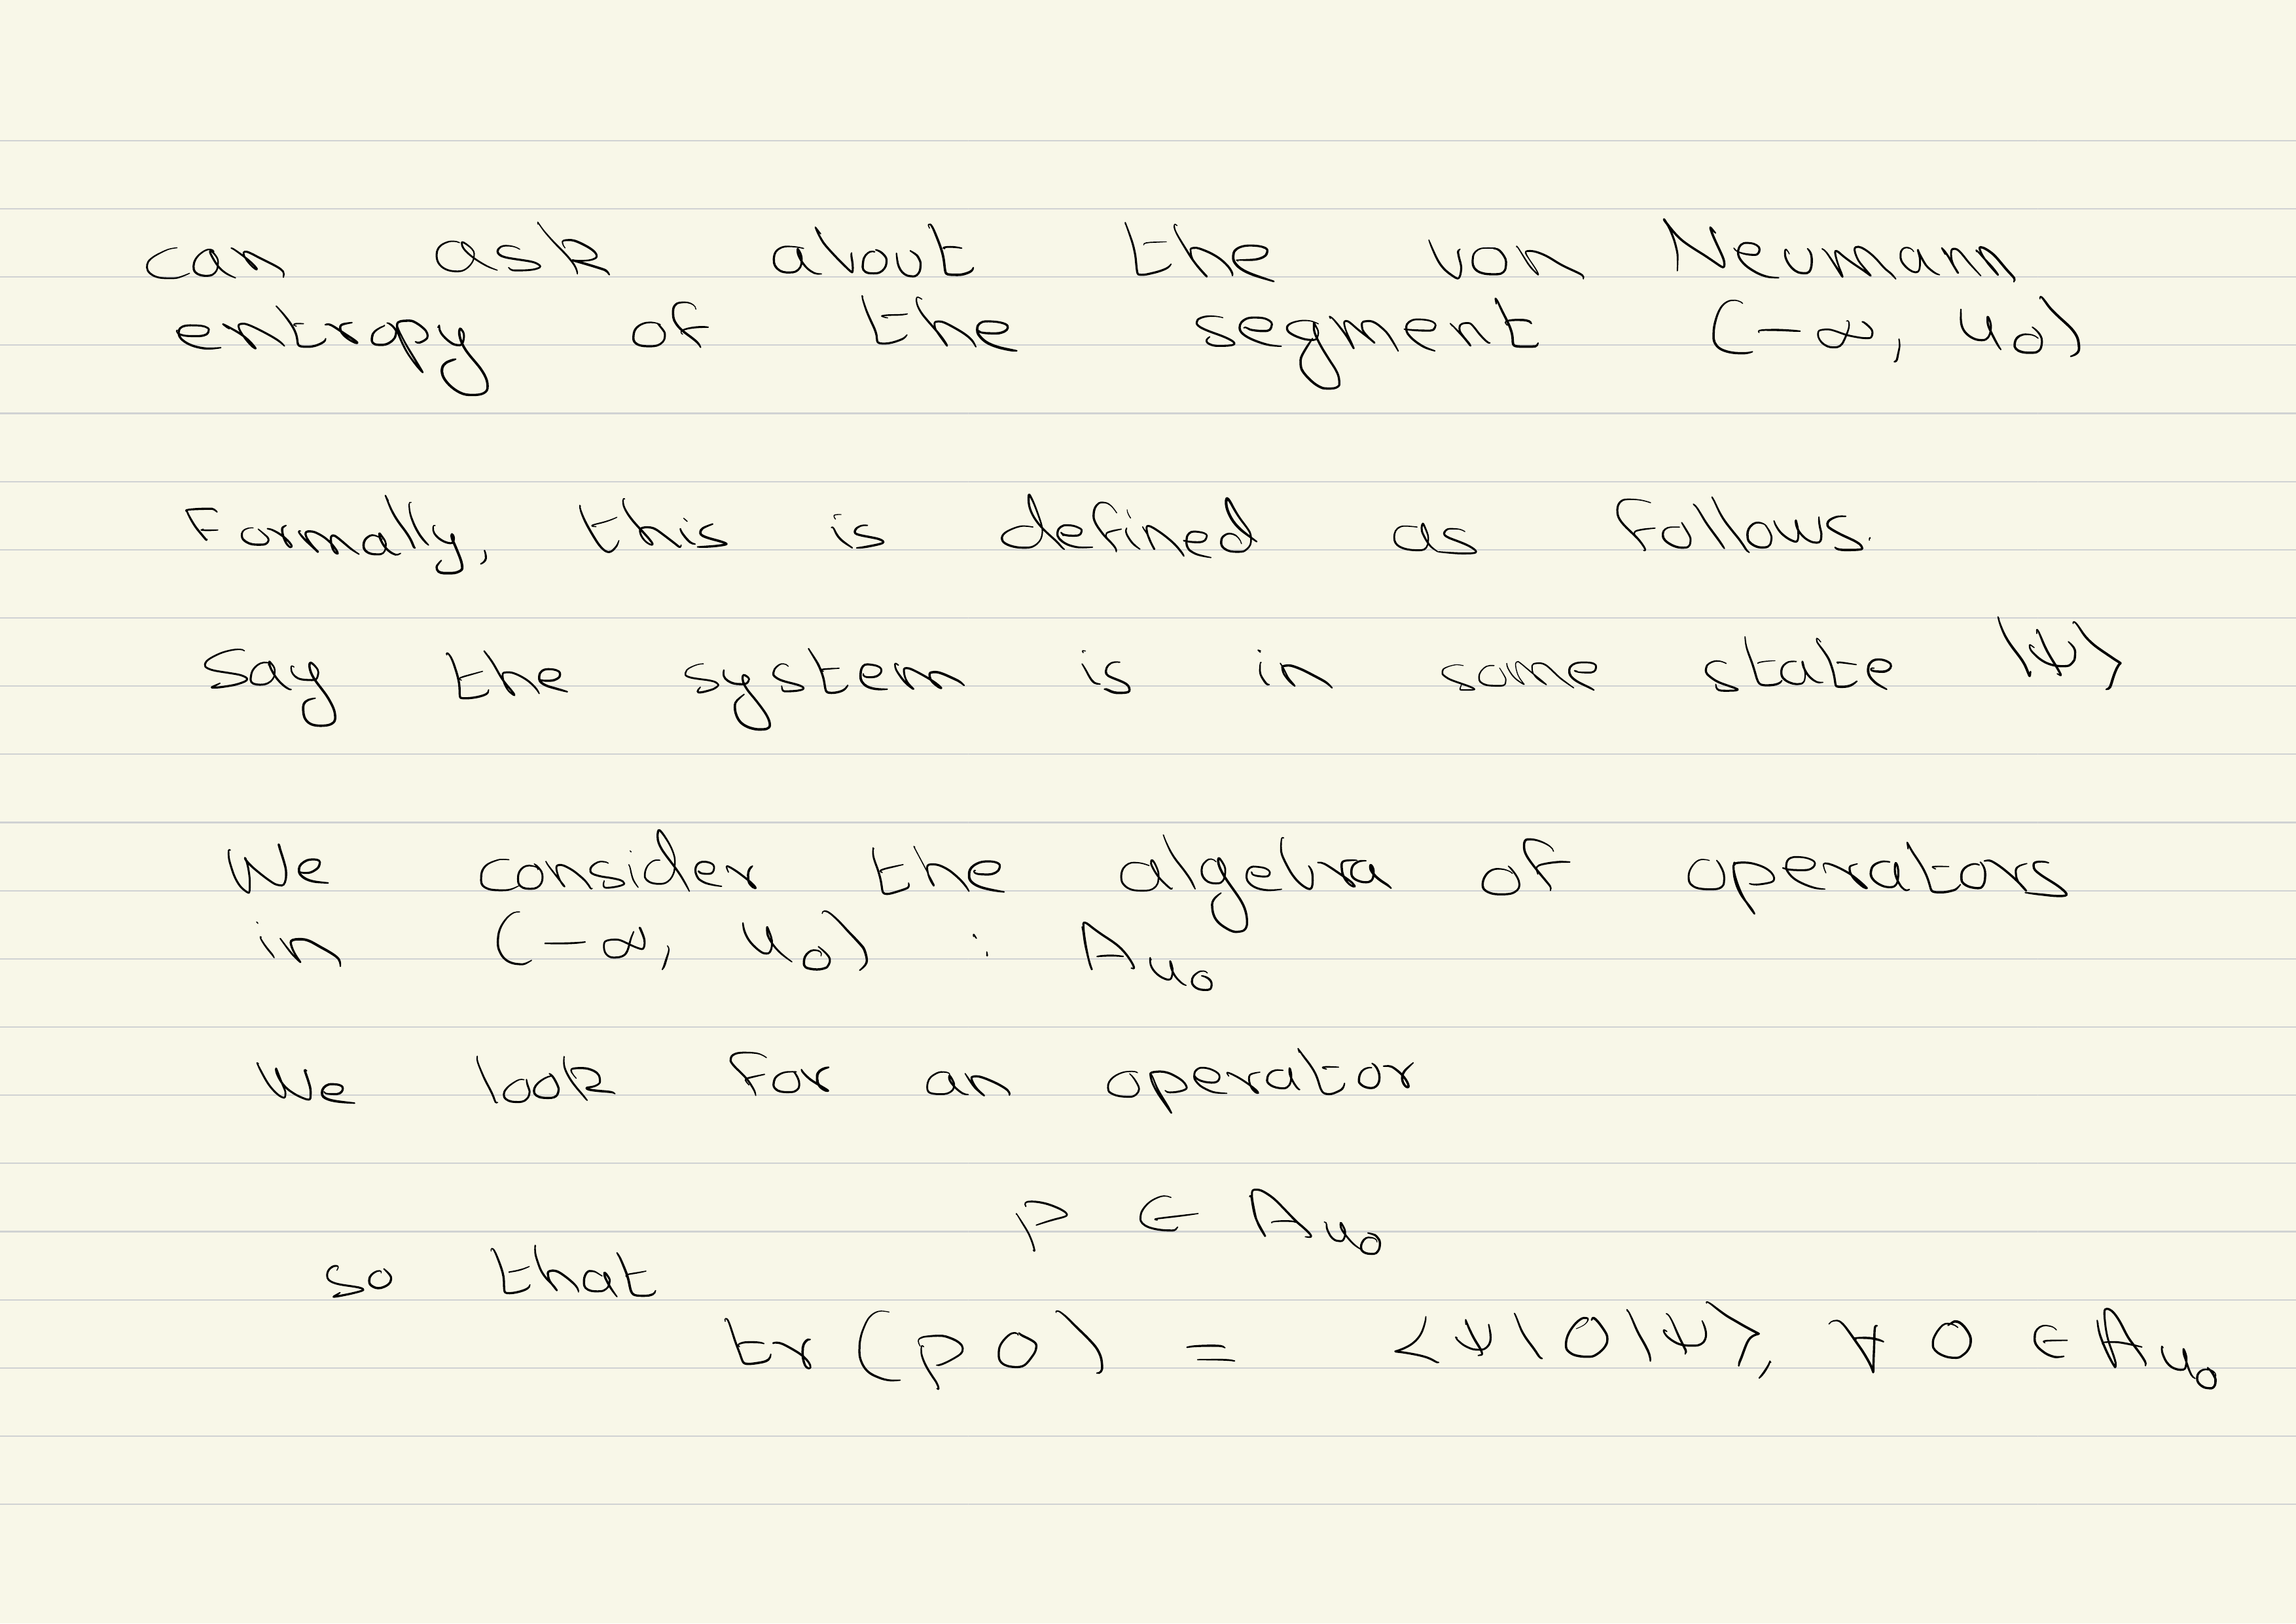 can ask about the von Neumann
entropy of the segment (-∞, u₀)
Formally, this is defined as follows.
Say the system is in some state |Ψ⟩
We consider the algebra of operators
in (-∞, u₀) : A_{u₀}
We look for an operator
ρ ∈ A_{u₀}
so that
tr(ρ O) = ⟨Ψ|O|Ψ⟩, ∀ O ∈ A_{u₀}